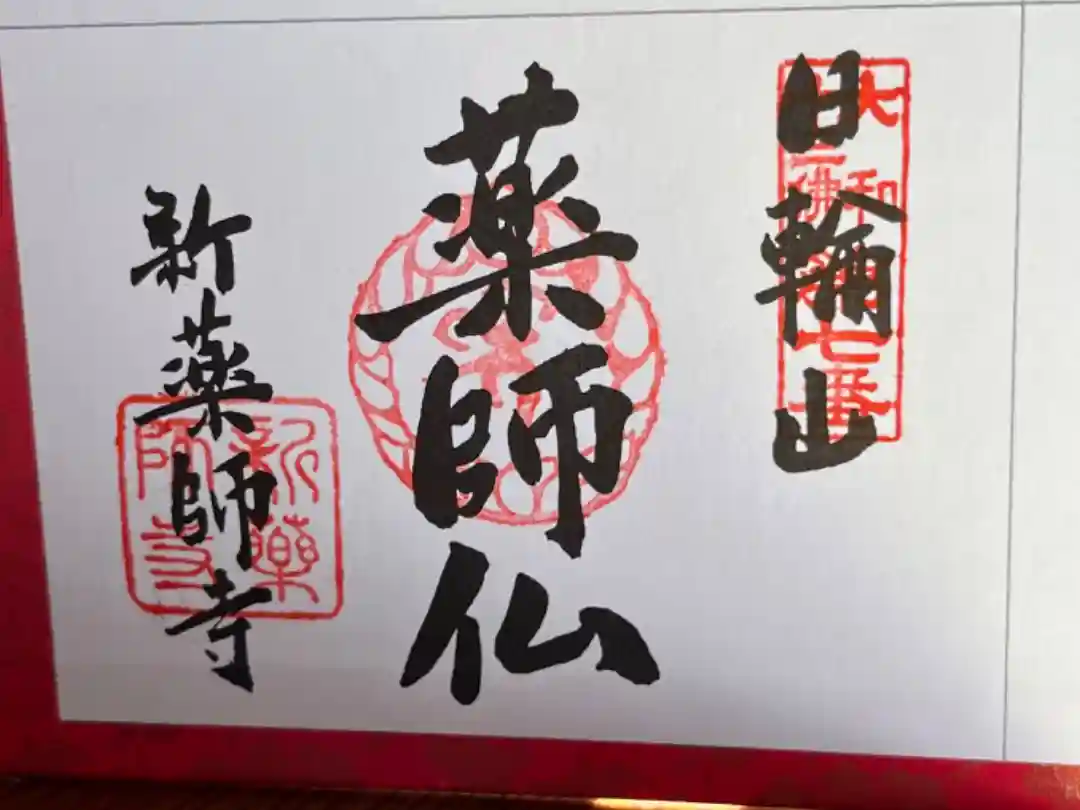 日輪山
大和
三佛
七番
薬師仏
新薬師寺
新藥師寺